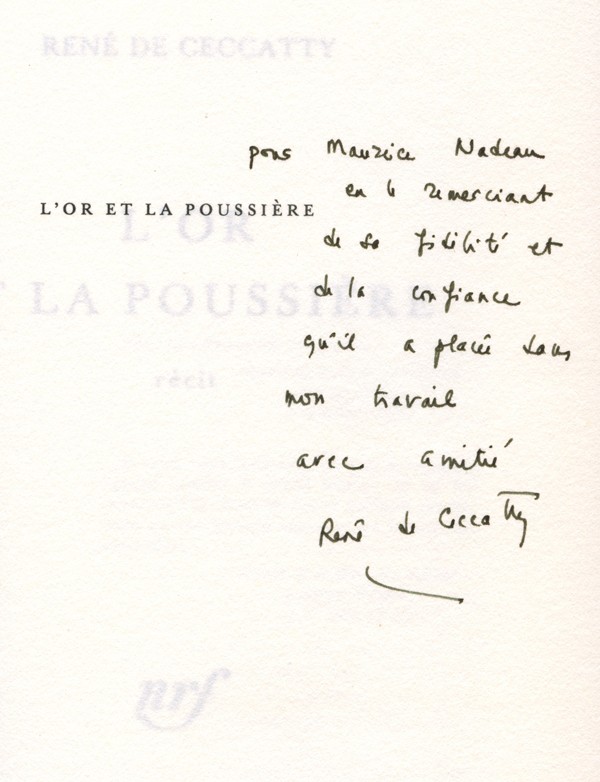 RENÉ DE CECCATTY
pour Maurice Nadeau
en le remerciant
L'OR ET LA POUSSIÈRE
L'OR
de sa fidélité et
LA POUSSIÈRE
de la confiance
qu'il a placée dans
récit
mon travail
avec amitié
René de Ceccatty
nrf